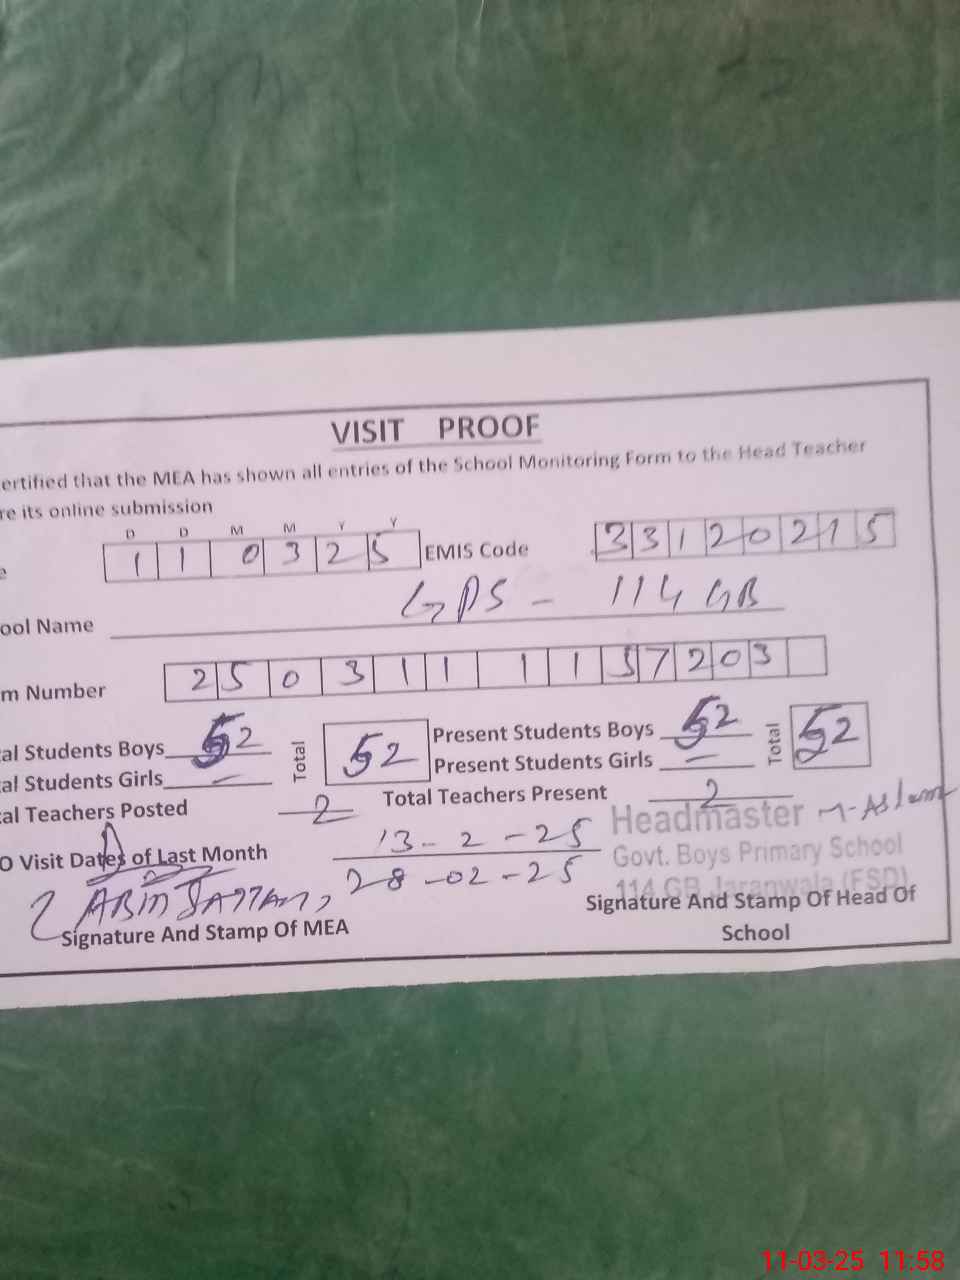 VISIT PROOF
ertified that the MEA has shown all entries of the School Monitoring Form to the Head Teacher
re its online submission
D D M M Y Y
e 1 1 0 3 2 5 EMIS Code 3 3 1 2 0 2 1 5
ool Name GPS - 114 GB
m Number 2 5 0 3 1 1 1 1 5 7 2 0 3
al Students Boys 52 Total 52 Present Students Boys 52 Total 52
al Students Girls - Present Students Girls -
al Teachers Posted 2 Total Teachers Present 2
Headmaster M-Aslam
O Visit Dates of Last Month 13-2-25
Govt. Boys Primary School
28-02-25
114 GB Jaranwala (FSD)
Signature And Stamp Of MEA
Signature And Stamp Of Head Of
School
11-03-25 11:58